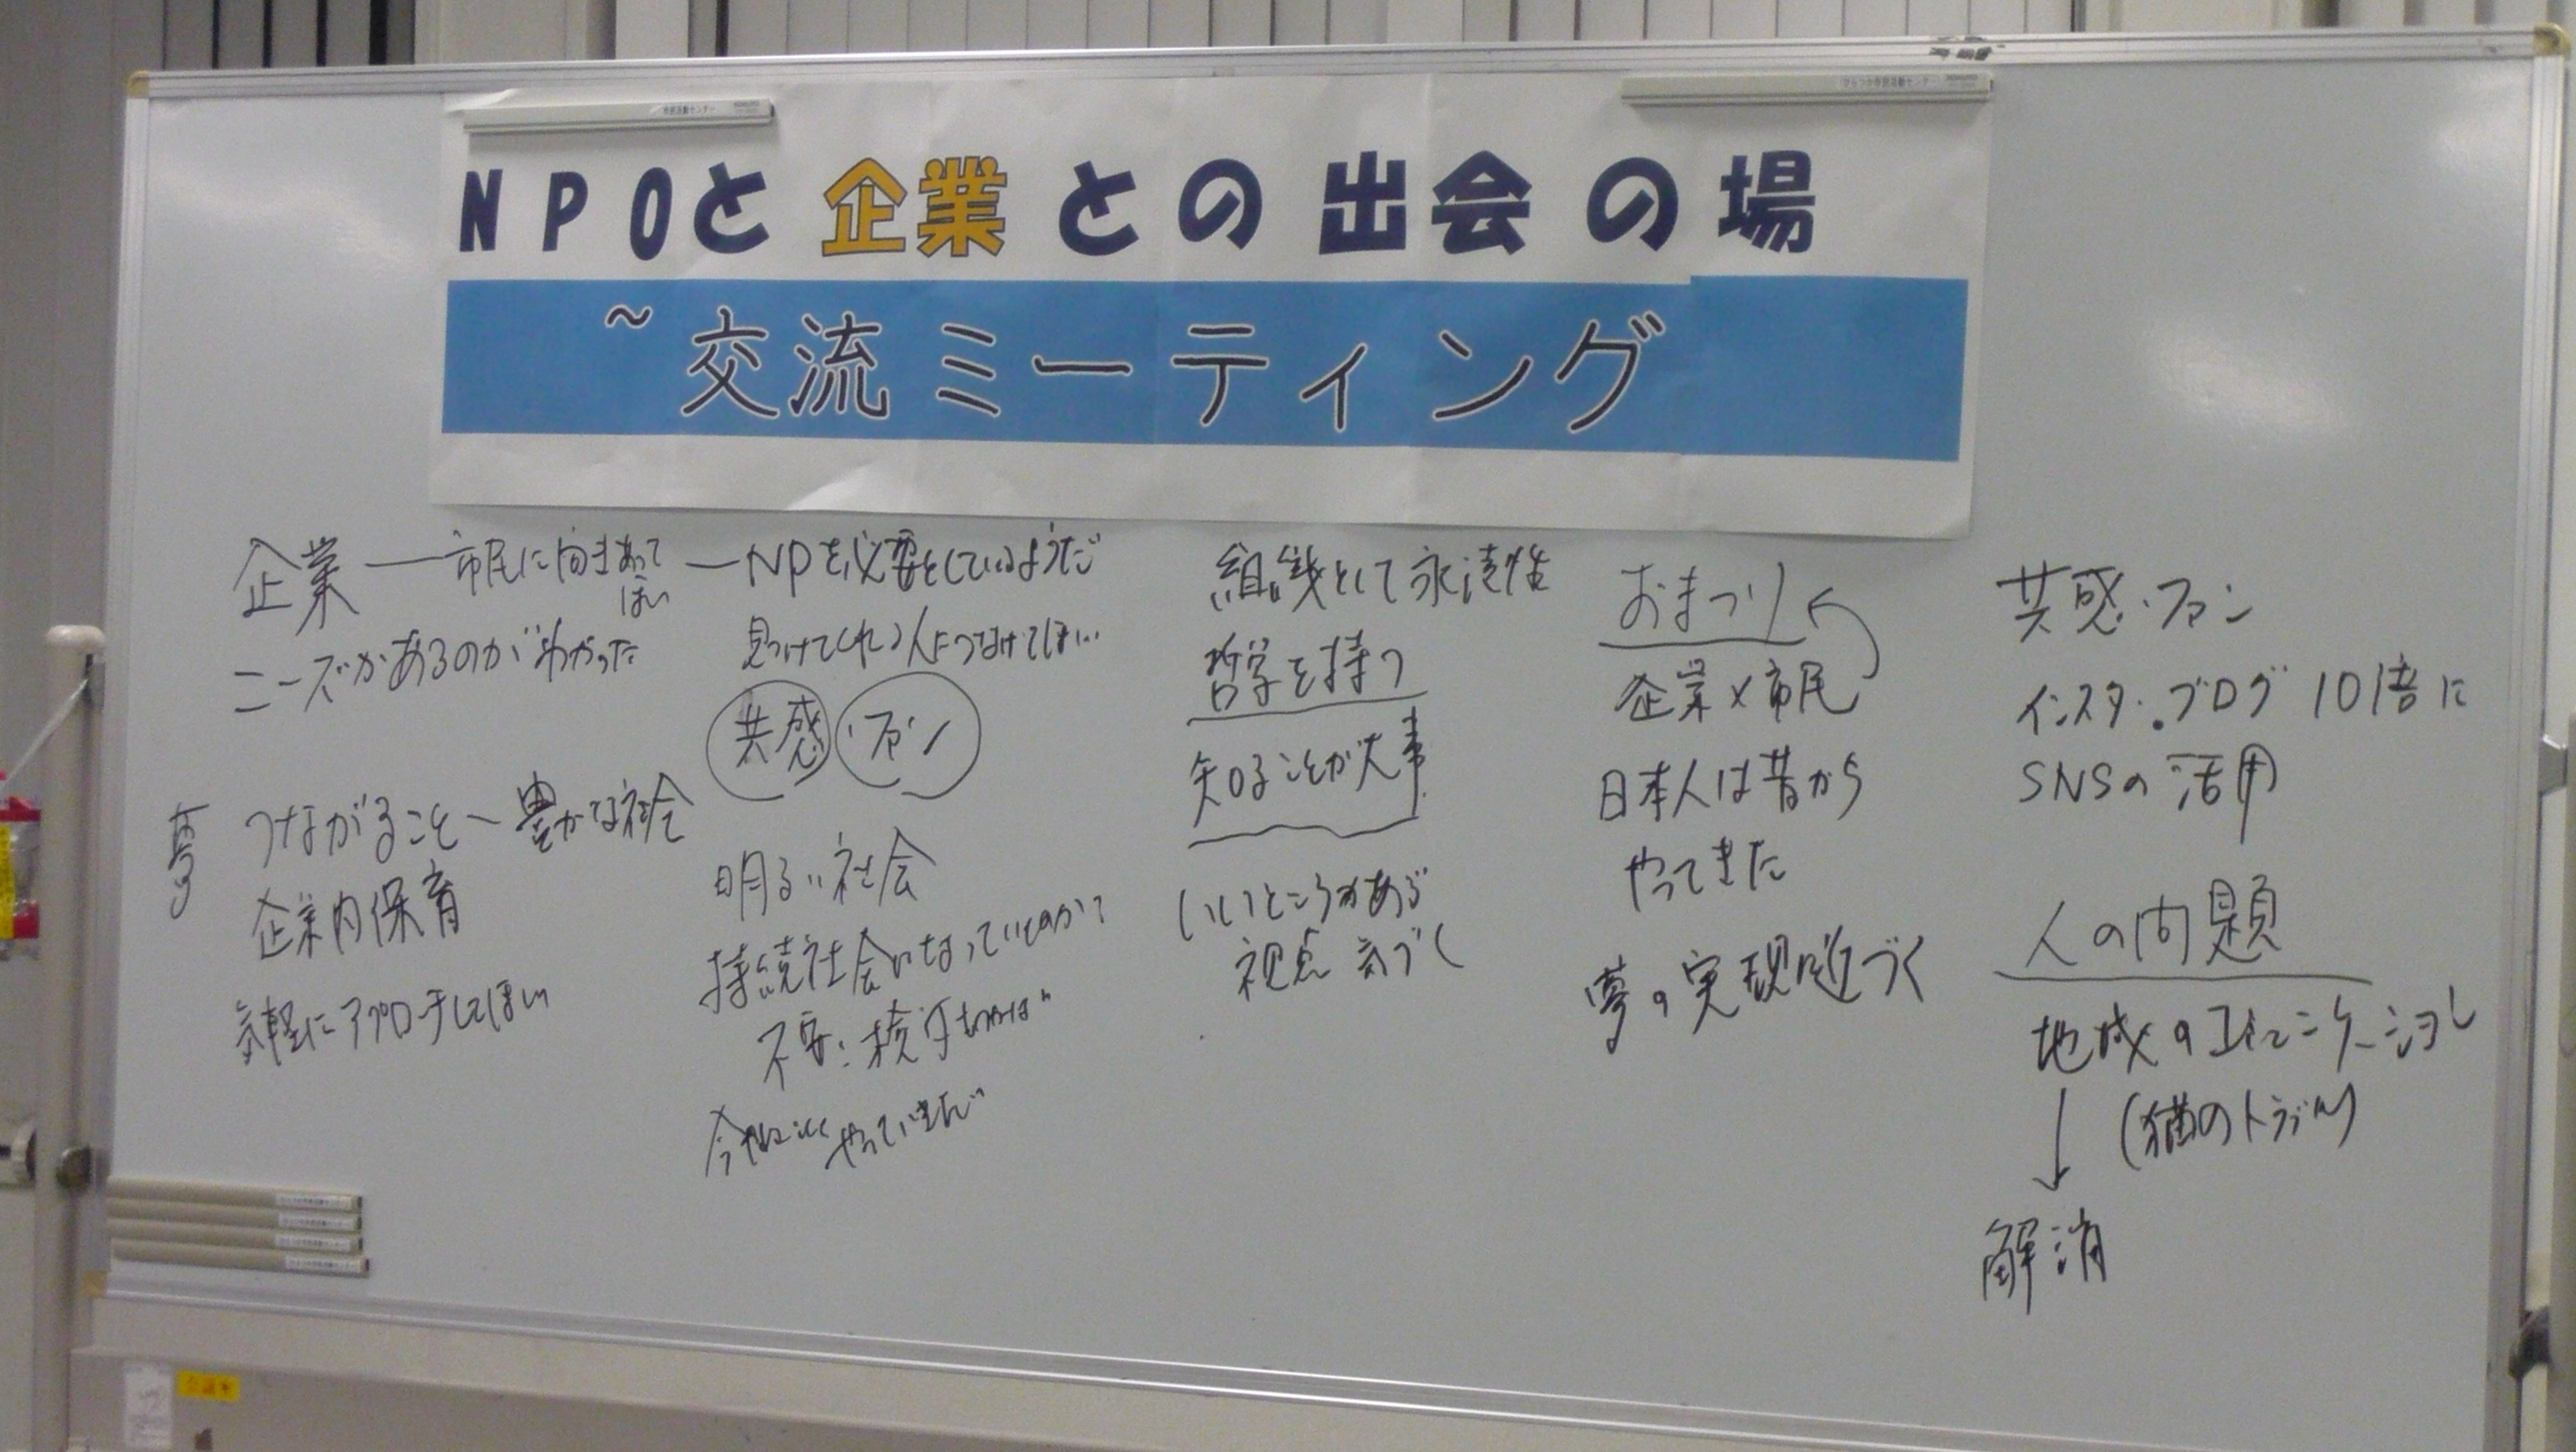 NPOと企業との出会の場
~交流ミーティング
企業 — 市民に向きあってほしい — NPを必要としているようだ
ニーズがあるのがわかった
見つけてくれる人につなげてほしい
共感 ファン
つながること〜豊かな社会
企業内保育
気軽にアプローチしてほしい
明るい社会
持続社会になっていくのか?
不安:
やっていません
組織として永遠性
哲学を持つ
知ることが大事
いいところがある
視点 気づく
おまつり
企業×市民
日本人は昔から
やってきた
夢の実現 近づく
共感・ファン
インスタ・ブログ 10倍に
SNSの活用
人の問題
地域のコミュニケーション
(猫のトラブル)
解消